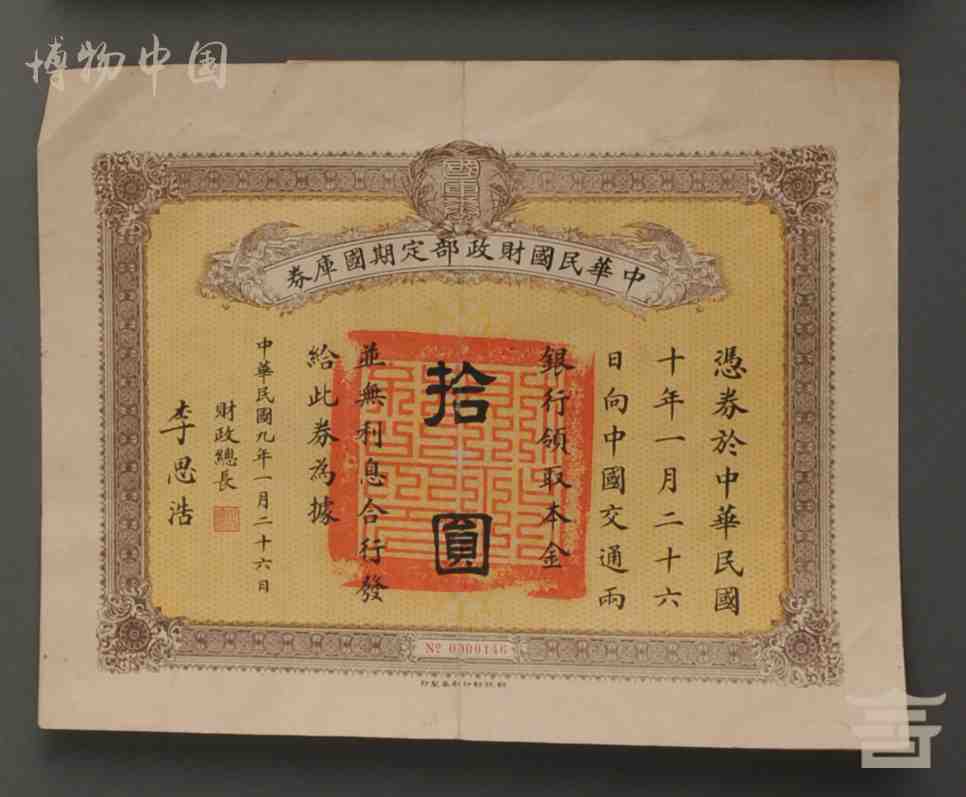 博物中国
國庫券
中華民國財政部定期國庫券
憑券於中華民國
十年一月二十六
日向中國交通兩
銀行領取本金
拾圓
並無利息合行發
給此券為據
中華民國九年一月二十六日
財政總長
李思浩
№ 0000146